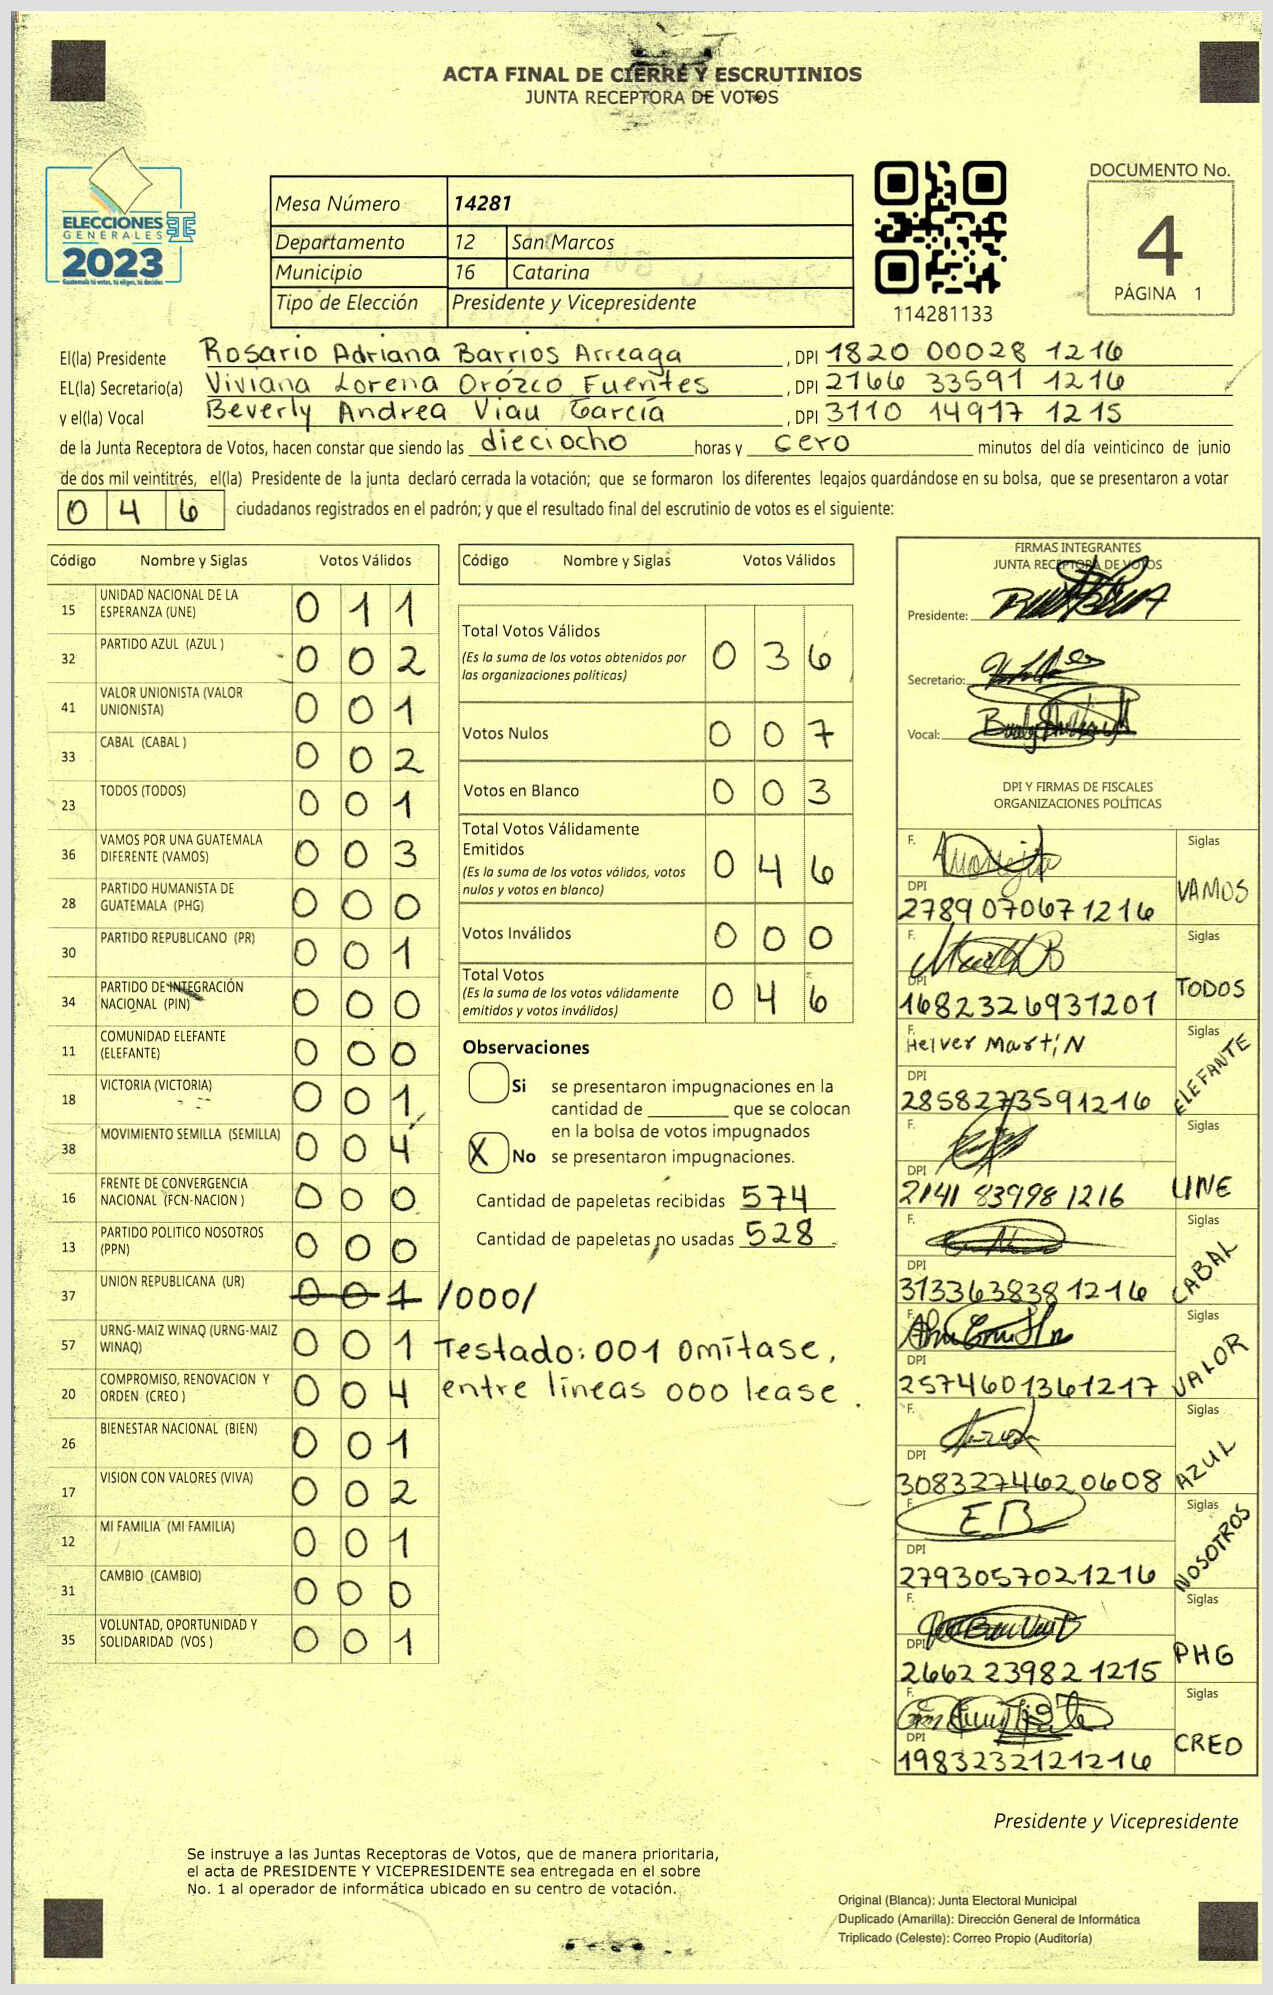 ACTA FINAL DE CIERRE Y ESCRUTINIOS
JUNTA RECEPTORA DE VOTOS
ELECCIONES
GENERALES
2023
Guatemala tú votas, tú eliges, tú decides
Mesa Número 14281
Departamento 12 San Marcos
Municipio 16 Catarina
Tipo de Elección Presidente y Vicepresidente
114281133
DOCUMENTO No.
4
PÁGINA 1
El(la) Presidente Rosario Adriana Barrios Arreaga , DPI 1820 00028 1216
EL(la) Secretario(a) Viviana Lorena Orózco Fuentes , DPI 2166 33591 1216
y el(la) Vocal Beverly Andrea Viau García , DPI 3110 14917 1215
de la Junta Receptora de Votos, hacen constar que siendo las dieciocho horas y cero minutos del día veinticinco de junio
de dos mil veintitrés, el(la) Presidente de la junta declaró cerrada la votación; que se formaron los diferentes legajos guardándose en su bolsa, que se presentaron a votar
0 4 6 ciudadanos registrados en el padrón; y que el resultado final del escrutinio de votos es el siguiente:
Código Nombre y Siglas Votos Válidos
15 UNIDAD NACIONAL DE LA ESPERANZA (UNE) 0 1 1
32 PARTIDO AZUL (AZUL ) 0 0 2
41 VALOR UNIONISTA (VALOR UNIONISTA) 0 0 1
33 CABAL (CABAL ) 0 0 2
23 TODOS (TODOS) 0 0 1
36 VAMOS POR UNA GUATEMALA DIFERENTE (VAMOS) 0 0 3
28 PARTIDO HUMANISTA DE GUATEMALA (PHG) 0 0 0
30 PARTIDO REPUBLICANO (PR) 0 0 1
34 PARTIDO DE INTEGRACIÓN NACIONAL (PIN) 0 0 0
11 COMUNIDAD ELEFANTE (ELEFANTE) 0 0 0
18 VICTORIA (VICTORIA) 0 0 1
38 MOVIMIENTO SEMILLA (SEMILLA) 0 0 4
16 FRENTE DE CONVERGENCIA NACIONAL (FCN-NACION ) 0 0 0
13 PARTIDO POLITICO NOSOTROS (PPN) 0 0 0
37 UNION REPUBLICANA (UR) 0 0 1 /000/
57 URNG-MAIZ WINAQ (URNG-MAIZ WINAQ) 0 0 1
20 COMPROMISO, RENOVACION Y ORDEN (CREO ) 0 0 4
26 BIENESTAR NACIONAL (BIEN) 0 0 1
17 VISION CON VALORES (VIVA) 0 0 2
12 MI FAMILIA (MI FAMILIA) 0 0 1
31 CAMBIO (CAMBIO) 0 0 0
35 VOLUNTAD, OPORTUNIDAD Y SOLIDARIDAD (VOS ) 0 0 1
Testado: 001 Omítase,
entre líneas 000 lease.
Código Nombre y Siglas Votos Válidos
Total Votos Válidos 0 3 6
(Es la suma de los votos obtenidos por
las organizaciones políticas)
Votos Nulos 0 0 7
Votos en Blanco 0 0 3
Total Votos Válidamente
Emitidos 0 4 6
(Es la suma de los votos válidos, votos
nulos y votos en blanco)
Votos Inválidos 0 0 0
Total Votos 0 4 6
(Es la suma de los votos válidamente
emitidos y votos inválidos)
Observaciones
Si se presentaron impugnaciones en la
cantidad de ________ que se colocan
en la bolsa de votos impugnados
X No se presentaron impugnaciones.
Cantidad de papeletas recibidas 574
Cantidad de papeletas no usadas 528
FIRMAS INTEGRANTES
JUNTA RECEPTORA DE VOTOS
Presidente:
Secretario:
Vocal:
DPI Y FIRMAS DE FISCALES
ORGANIZACIONES POLÍTICAS
F. Siglas
DPI VAMOS
2789070671216
F. Siglas
DPI TODOS
1682326931201
F. Helver Martín Siglas
DPI ELEFANTE
2858273591216
F. Siglas
DPI UNE
2141 83998 1216
F. Siglas
DPI CABAL
3133638381216
F. Siglas
DPI VALOR
2574601361217
F. Siglas
DPI AZUL
3083274620608
F. EB Siglas
DPI NOSOTROS
2793057021216
F. Siglas
DPI PHG
2662239821215
F. Siglas
DPI CREO
1983232121216
Presidente y Vicepresidente
Se instruye a las Juntas Receptoras de Votos, que de manera prioritaria,
el acta de PRESIDENTE Y VICEPRESIDENTE sea entregada en el sobre
No. 1 al operador de informática ubicado en su centro de votación.
Original (Blanca): Junta Electoral Municipal
Duplicado (Amarilla): Dirección General de Informática
Triplicado (Celeste): Correo Propio (Auditoría)